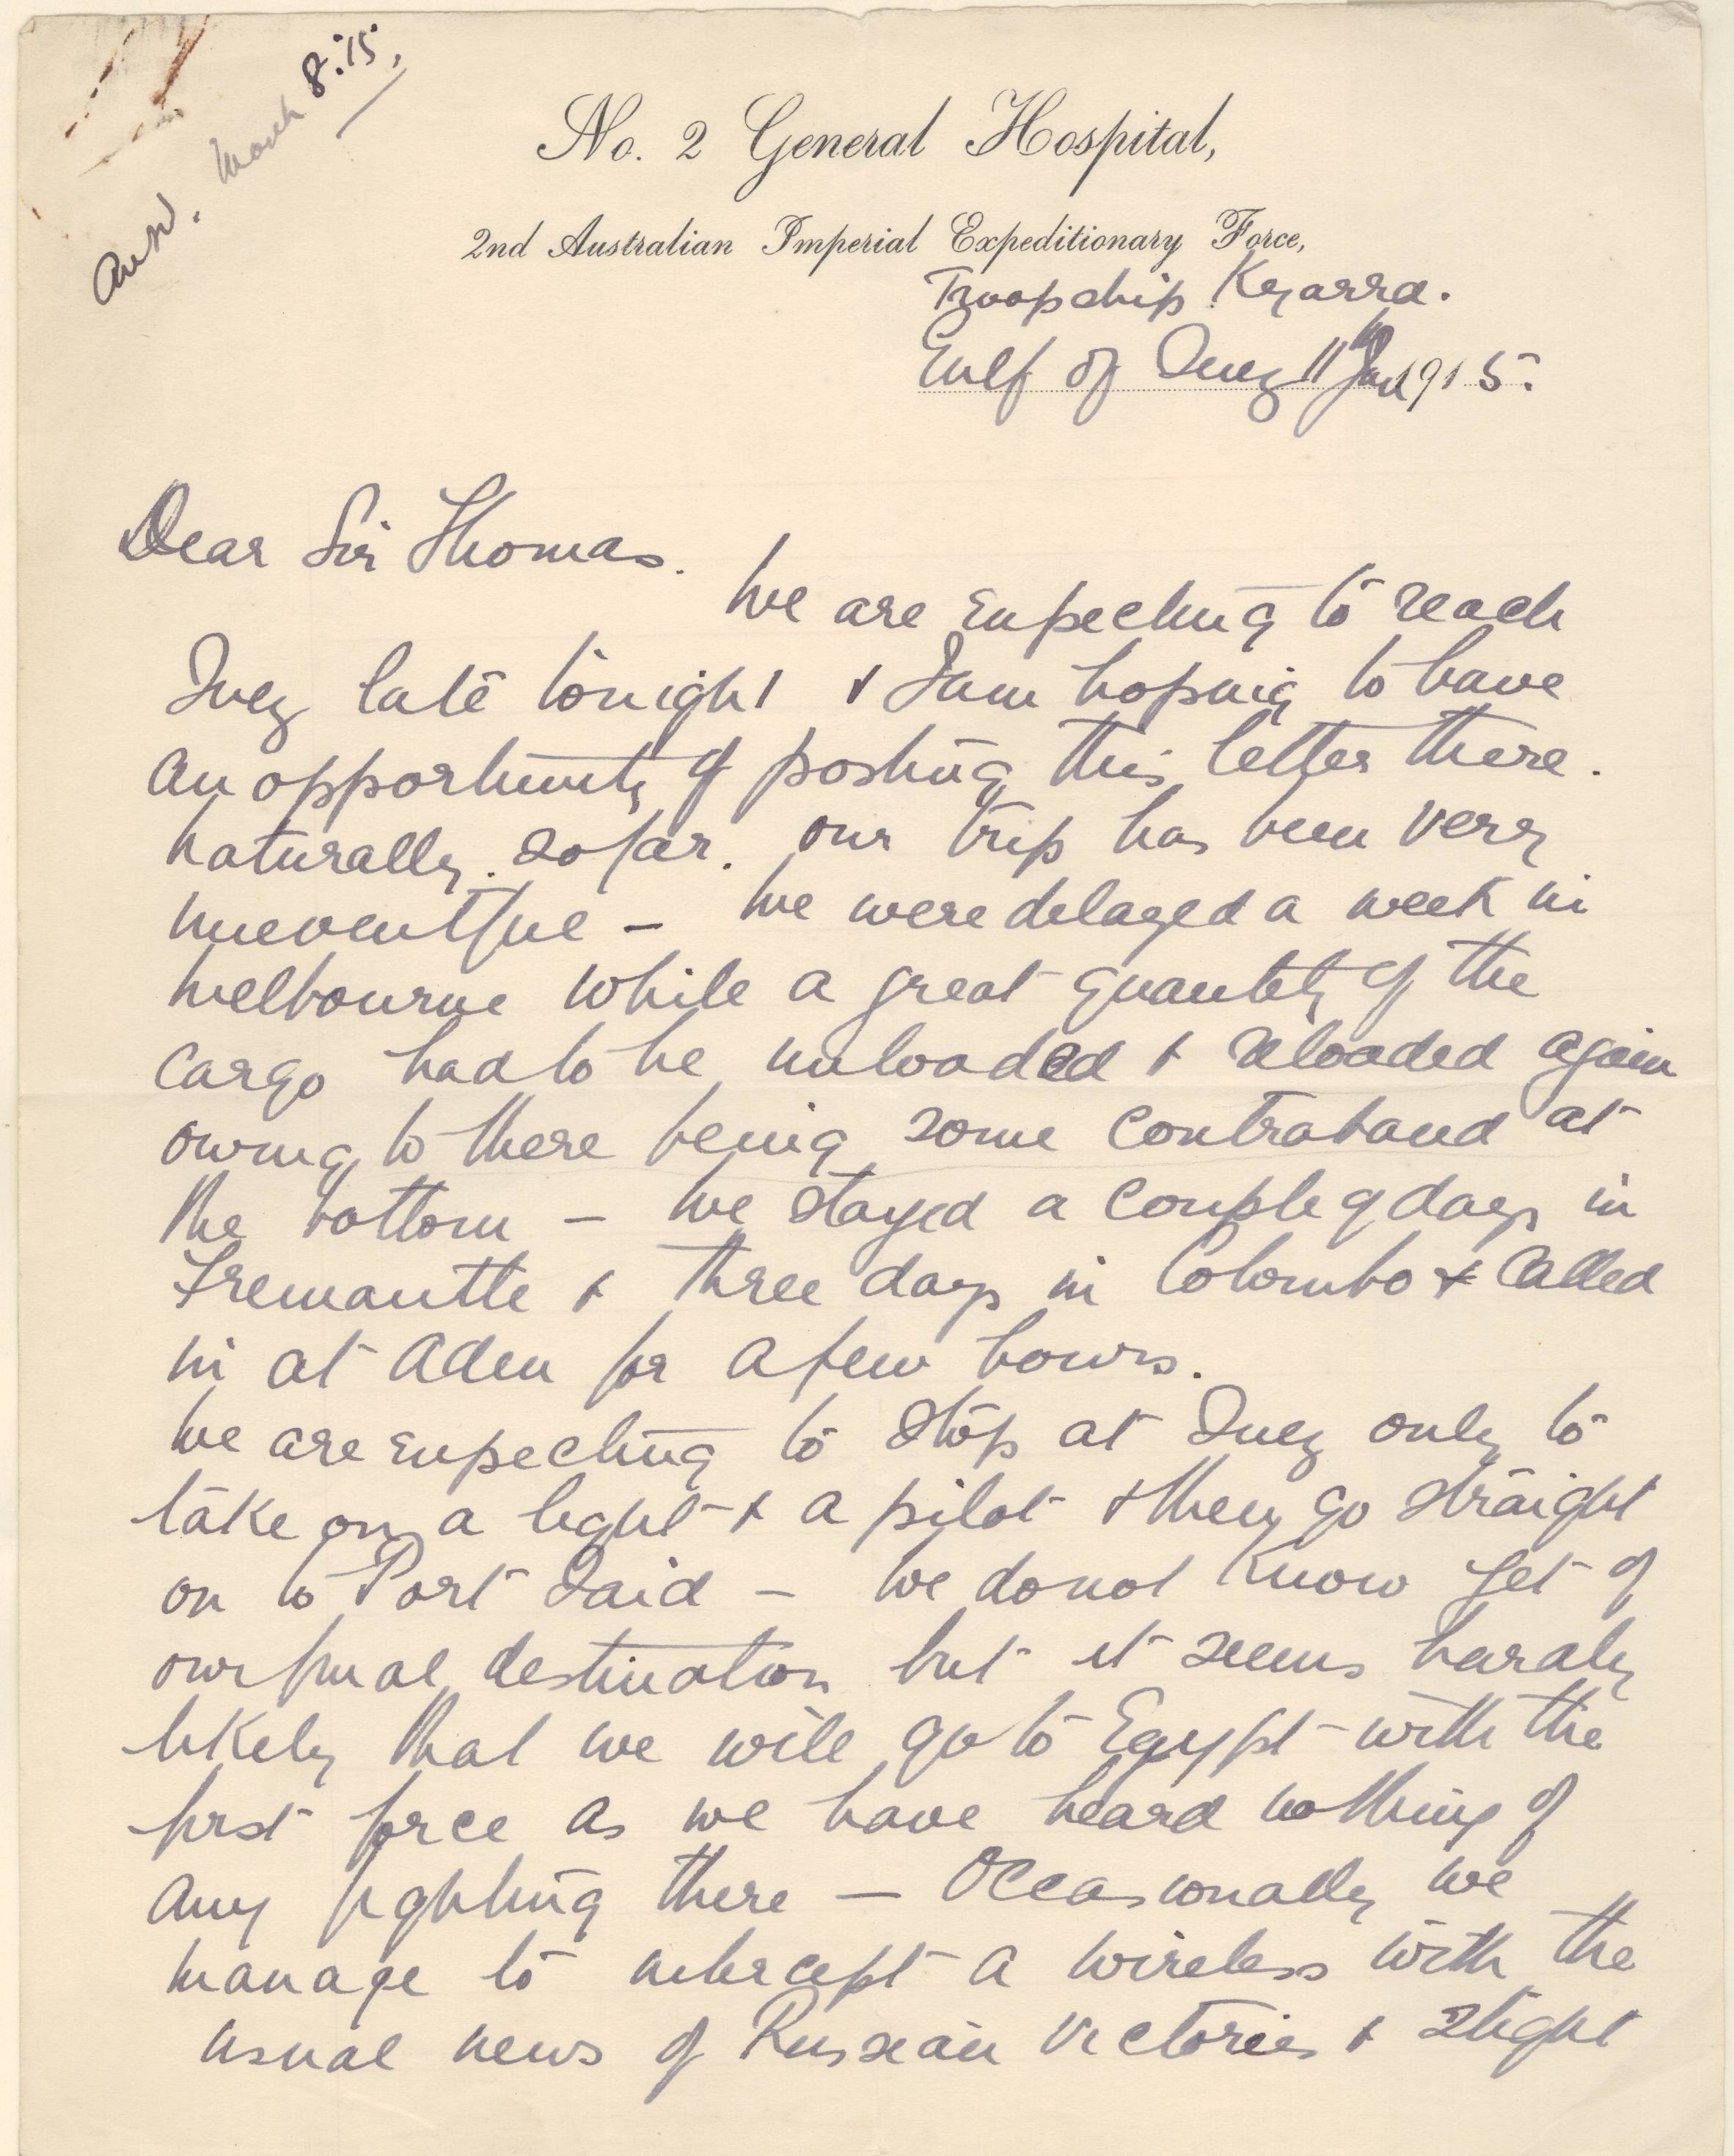 Answ. March 8:15.
No. 2 General Hospital,
2nd Australian Imperial Expeditionary Force,
Troopship Kyarra.
Gulf of Suez 11th Jan 1915.
Dear Sir Thomas.
We are expecting to reach
Suez late tonight & I am hoping to have
an opportunity of posting this letter there.
Naturally. so far. our trip has been very
uneventful – We were delayed a week in
Melbourne while a great quantity of the
cargo had to be unloaded & reloaded again
owing to there being some contraband at
the bottom – We stayed a couple of days in
Fremantle & three days in Colombo & called
in at Aden for a few hours.
We are expecting to stop at Suez only to
take on a light & a pilot & then go straight
on to Port Said – We do not know yet of
our final destination but it seems hardly
likely that we will go to Egypt with the
first force as we have heard nothing of
any fighting there – Occasionally we
manage to intercept a wireless with the
usual news of Russian victories & slight